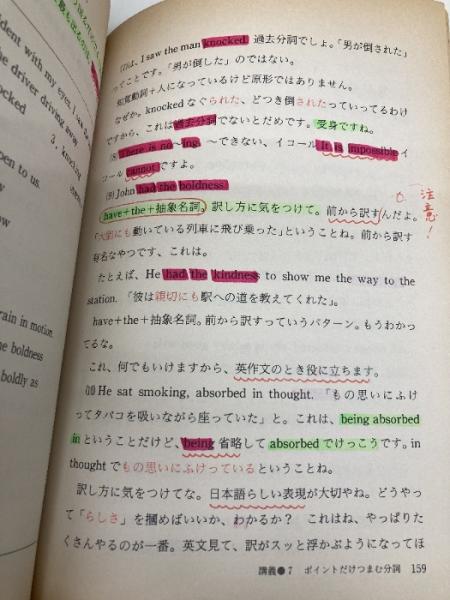 (7)は、I saw the man knocked. 過去分詞でしょ。「男が倒された」
ってことです。「男が倒した」のではない。
知覚動詞＋人になっているけど原形ではありません。
なぜか。knockedなぐられた、どつき倒されたっていってるわけ
ですから、これは過去分詞でないとだめです。受身ですね。
(8) There is no～ing. ～できない、イコール It is impossible イ
コール cannot ですよ。
(9) John had the boldness
have＋the＋抽象名詞。訳し方に気をつけて。前から訳すんだよ。
注意！
「大胆にも動いている列車に飛び乗った」ということね。前から訳す
有名なやつです、これは。
たとえば、He had the kindness to show me the way to the
station. 「彼は親切にも駅への道を教えてくれた」。
have＋the＋抽象名詞。前から訳すっていうパターン。もうわかっ
てるな。
これ、何でもいけますから、英作文のとき役に立ちます。
(10) He sat smoking, absorbed in thought. 「もの思いにふけ
ってタバコを吸いながら座っていた」と。これは、being absorbed
in ということだけど、being 省略して absorbed でけっこうです。in
thought でもの思いにふけっているということね。
訳し方に気をつけてな。日本語らしい表現が大切やね。どうやっ
て「らしさ」を摑めばいいか、わかるか？ これはね、やっぱりた
くさんやるのが一番。英文見て、訳がスッと浮かぶようになってほ
講義●7 ポイントだけつまむ分詞 159
ident with my eyes. I can
the driver driving away
nocked
3. knocking
pen to us.
ow
rain in motion.
the boldness
boldly as